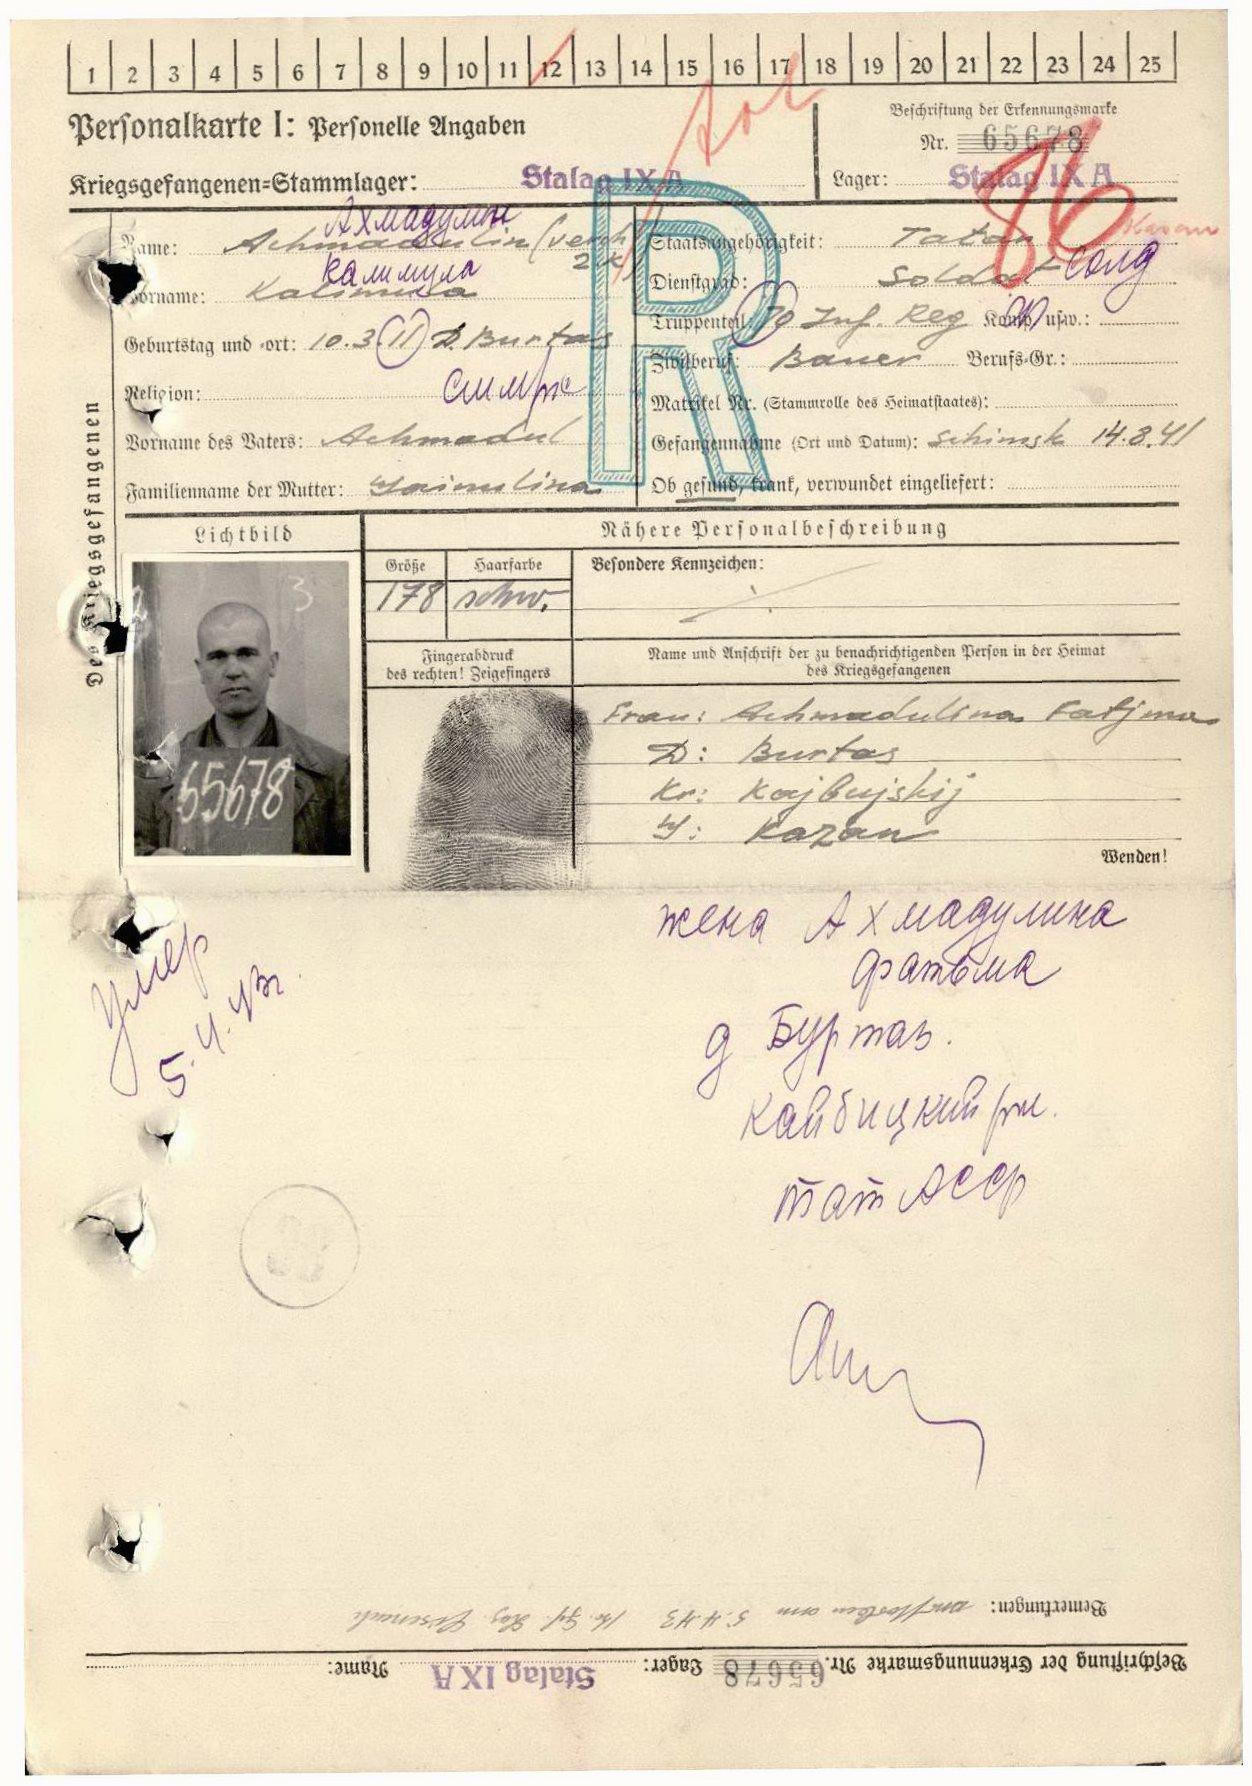 1 2 3 4 5 6 7 8 9 10 11 12 13 14 15 16 17 18 19 20 21 22 23 24 25
tot
Personalkarte I: Personelle Angaben
Beschriftung der Erkennungsmarke
Nr. 65678
Kriegsgefangenen-Stammlager: Stalag IX A
Lager: Stalag IX A
86
Kasan
R
Ахмадулин
Name: Achmadulin (verh 2 K)
Калимула
Vorname: Kalimula
Geburtstag und -ort: 10.3.11 D. Burtas
Religion:
Vorname des Vaters: Achmadul
Familienname der Mutter: Gainulina
Staatsangehörigkeit: Tatar
Dienstgrad: Soldat солд
Truppenteil: 70 Inf. Reg Komp. usw.:
Zivilberuf: Bauer Berufs-Gr.:
Matrikel Nr. (Stammrolle des Heimatstaates):
Gefangennahme (Ort und Datum): Schimsk 14.8.41
Ob gesund, krank, verwundet eingeliefert:
Des Kriegsgefangenen
Lichtbild
Nähere Personalbeschreibung
Größe
Haarfarbe
Besondere Kennzeichen:
178
schw.
3
65678
Fingerabdruck
des rechten! Zeigefingers
Name und Anschrift der zu benachrichtigenden Person in der Heimat
des Kriegsgefangenen
Frau: Achmadulina Fatjma
D: Burtas
Kr: Kajbujskij
G: Kazan
Wenden!
жена Ахмадулина
Фатьма
д Буртаз.
Кайбицкий рн.
Тат АССР
умер
5.4.43г.
Bemerkungen: verstorben am 5.4.43
Beschriftung der Erkennungsmarke Nr. 65678 Lager: Stalag IX A Name: